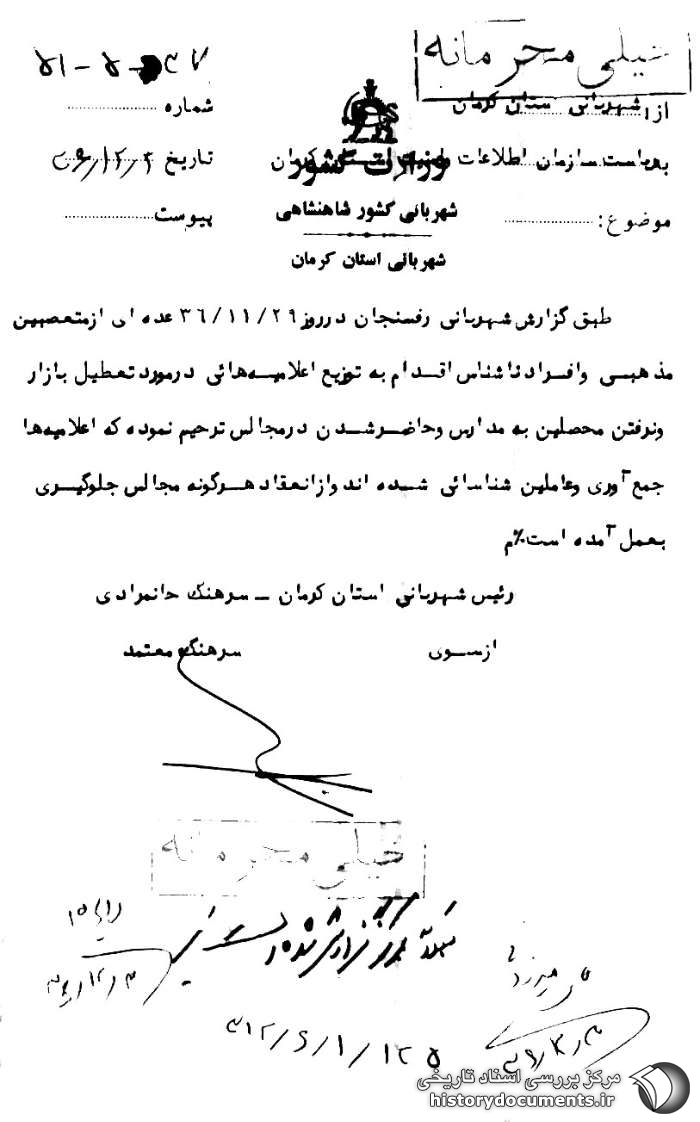 خیلی محرمانه
از: شهربانی استان کرمان
شماره
به: ریاست سازمان اطلاعات و امنیت کرمان
وزارت کشور
تاریخ ۳۶/۱۲/۳
موضوع:
شهربانی کشور شاهنشاهی
پیوست
شهربانی استان کرمان
طبق گزارش شهربانی رفسنجان درروز ۳۶/۱۱/۲۹ عده ای ازمتعصبین
مذهبی وافرادناشناس اقدام به توزیع اعلامیه‌هائی درمورد تعطیل بازار
ونرفتن محصلین به مدارس وحاضرشدن درمجالس ترحیم نموده که اعلامیه‌ها
جمع آوری وعاملین شناسائی شده اند وازانعقاد هرگونه مجالس جلوگیری
بعمل آمده است٪م
رئیس شهربانی استان کرمان ــ سرهنگ
ازسوی سرهنگ معتمد
خیلی محرمانه
۳۶/۱۲/۳
۳۱۲/۶/۱/۱۲۵
مرکز بررسی اسناد تاریخی
historydocuments.ir